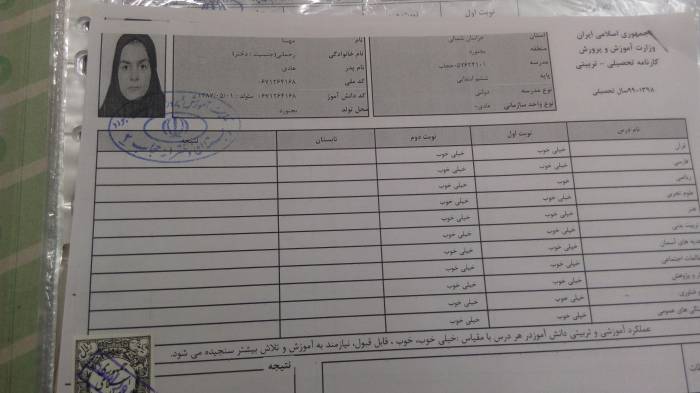 نوبت اول
جمهوری اسلامی ایران
وزارت آموزش و پرورش
کارنامه تحصیلی - تربیتی
سال تحصیلی ۱۳۹۸-۹۹
استان خراسان شمالی
منطقه بجنورد
مدرسه ۵۷۶۲۴۱۰۱-حجاب
پایه ششم ابتدایی
نوع مدرسه دولتی
نوع واحد سازمانی عادی-
نام مهسا
نام خانوادگی رحمانی(جنسیت : دختر)
نام پدر هادی
کد ملی ۰۶۷۱۲۶۲۱۶۸
کد دانش آموز ۰۶۷۱۲۶۲۱۶۸
محل تولد بجنورد
نام درس نوبت اول نوبت دوم تابستان نتیجه
قرآن خیلی خوب خیلی خوب
فارسی خیلی خوب خیلی خوب
ریاضی خوب خیلی خوب
علوم تجربی خیلی خوب خیلی خوب
هنر خیلی خوب خیلی خوب
تربیت بدنی خیلی خوب خیلی خوب
هدیه های آسمان خیلی خوب خیلی خوب
مطالعات اجتماعی خیلی خوب خیلی خوب
و پژوهش خیلی خوب خیلی خوب
و فناوری - خیلی خوب
های عمومی خیلی خوب خیلی خوب
عملکرد آموزشی و تربیتی دانش آموزدر هر درس با مقیاس :خیلی خوب، خوب ، قابل قبول، نیازمند به آموزش و تلاش بیشتر سنجیده می شود.
نتیجه